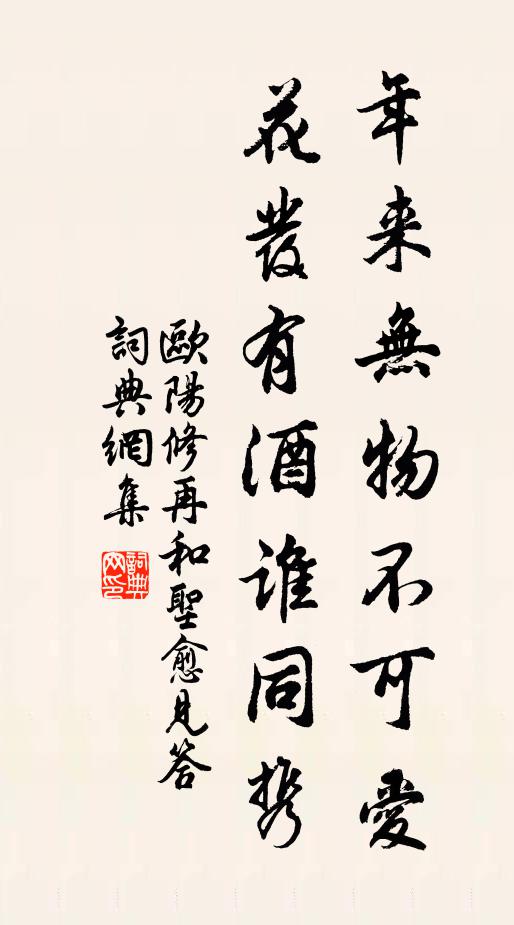 年来無物不可愛
花發有酒誰同携
歐陽修再和聖愈見答
詞典網集
詞典網印